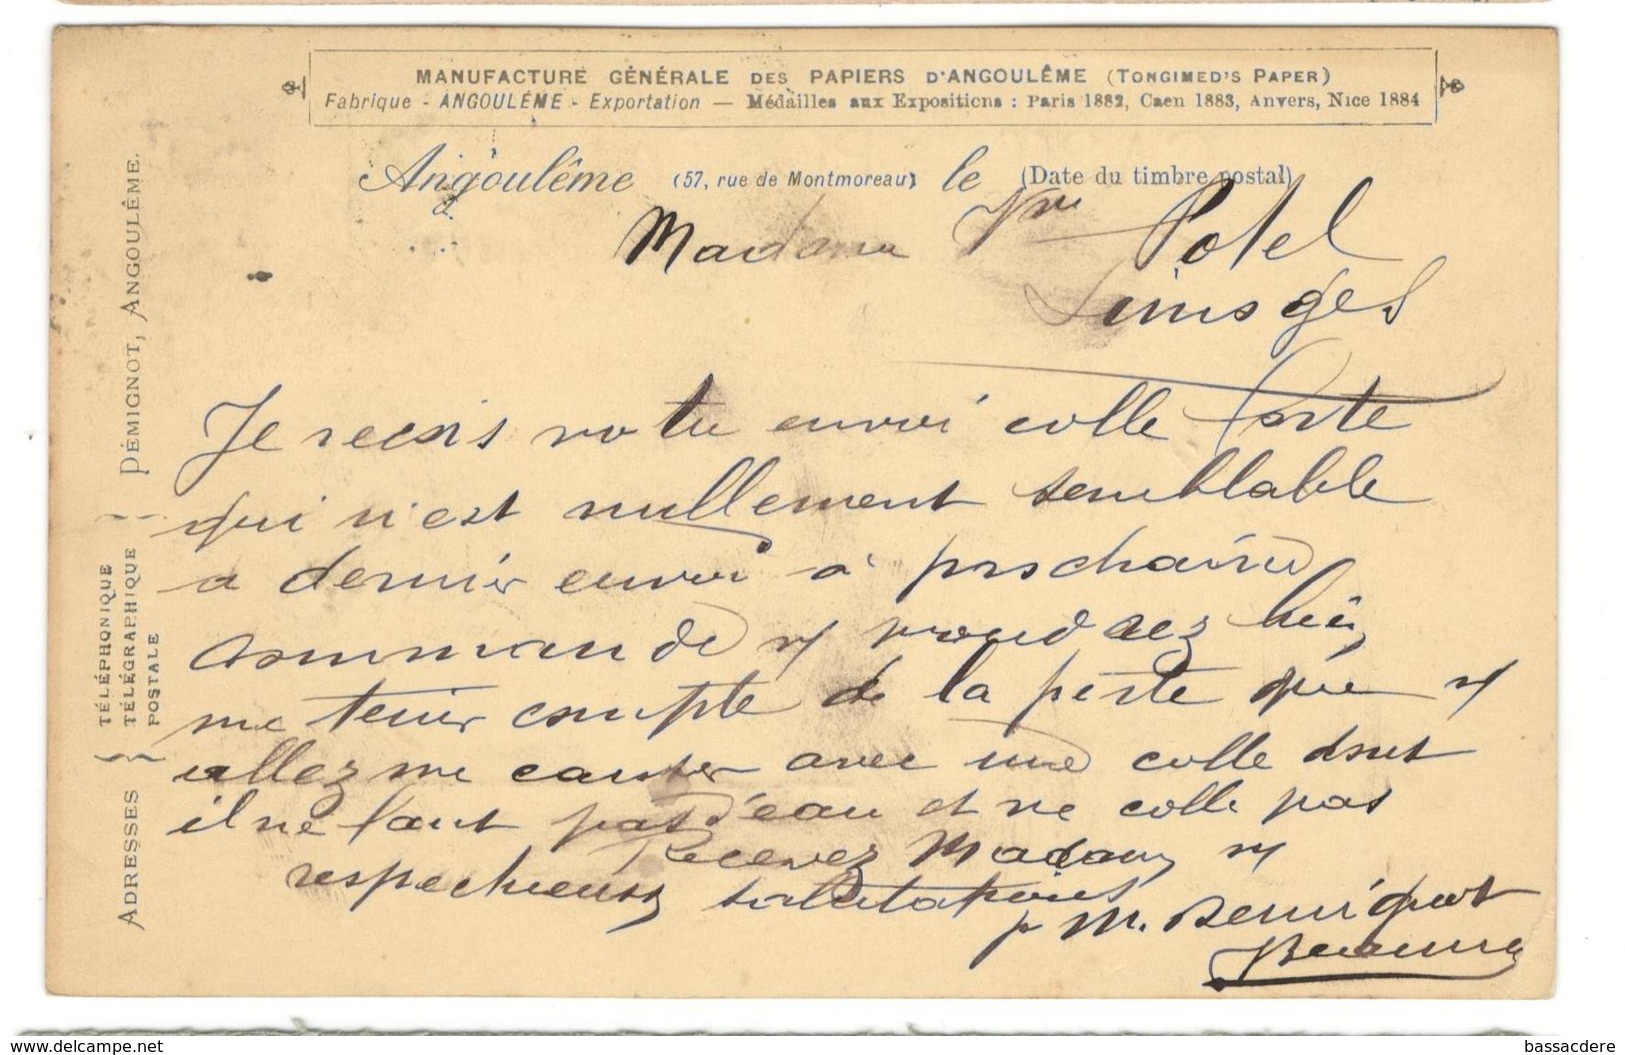 MANUFACTURE GÉNÉRALE DES PAPIERS D'ANGOULÊME (TONGIMED'S PAPER)
Fabrique - ANGOULÊME - Exportation — Médailles aux Expositions : Paris 1882, Caen 1883, Anvers, Nice 1884
Angoulême (57, rue de Montmoreau) le (Date du timbre postal)
Madame Vve Potel
Limoges
Je reçois votre envoi colle forte
qui n'est nullement semblable
a dernier envoi à prochaine
commande v/ voudrez bien
me tenir compte de la perte que v/
allez me causer avec une colle dont
il ne faut pas d'eau et ne colle pas
Recevez Madame v/
respectueuses salutations
p M. Demignot
ADRESSES TÉLÉPHONIQUE TÉLÉGRAPHIQUE POSTALE DÉMIGNOT, ANGOULÊME.
www.delcampe.net
bassacdere